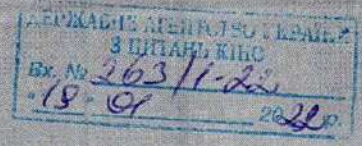 ДЕРЖАВНЕ АГЕНТСТВО УКРАЇНИ
З ПИТАНЬ КІНО
Вх. № 263/1-22
"19" 01 2022 р.